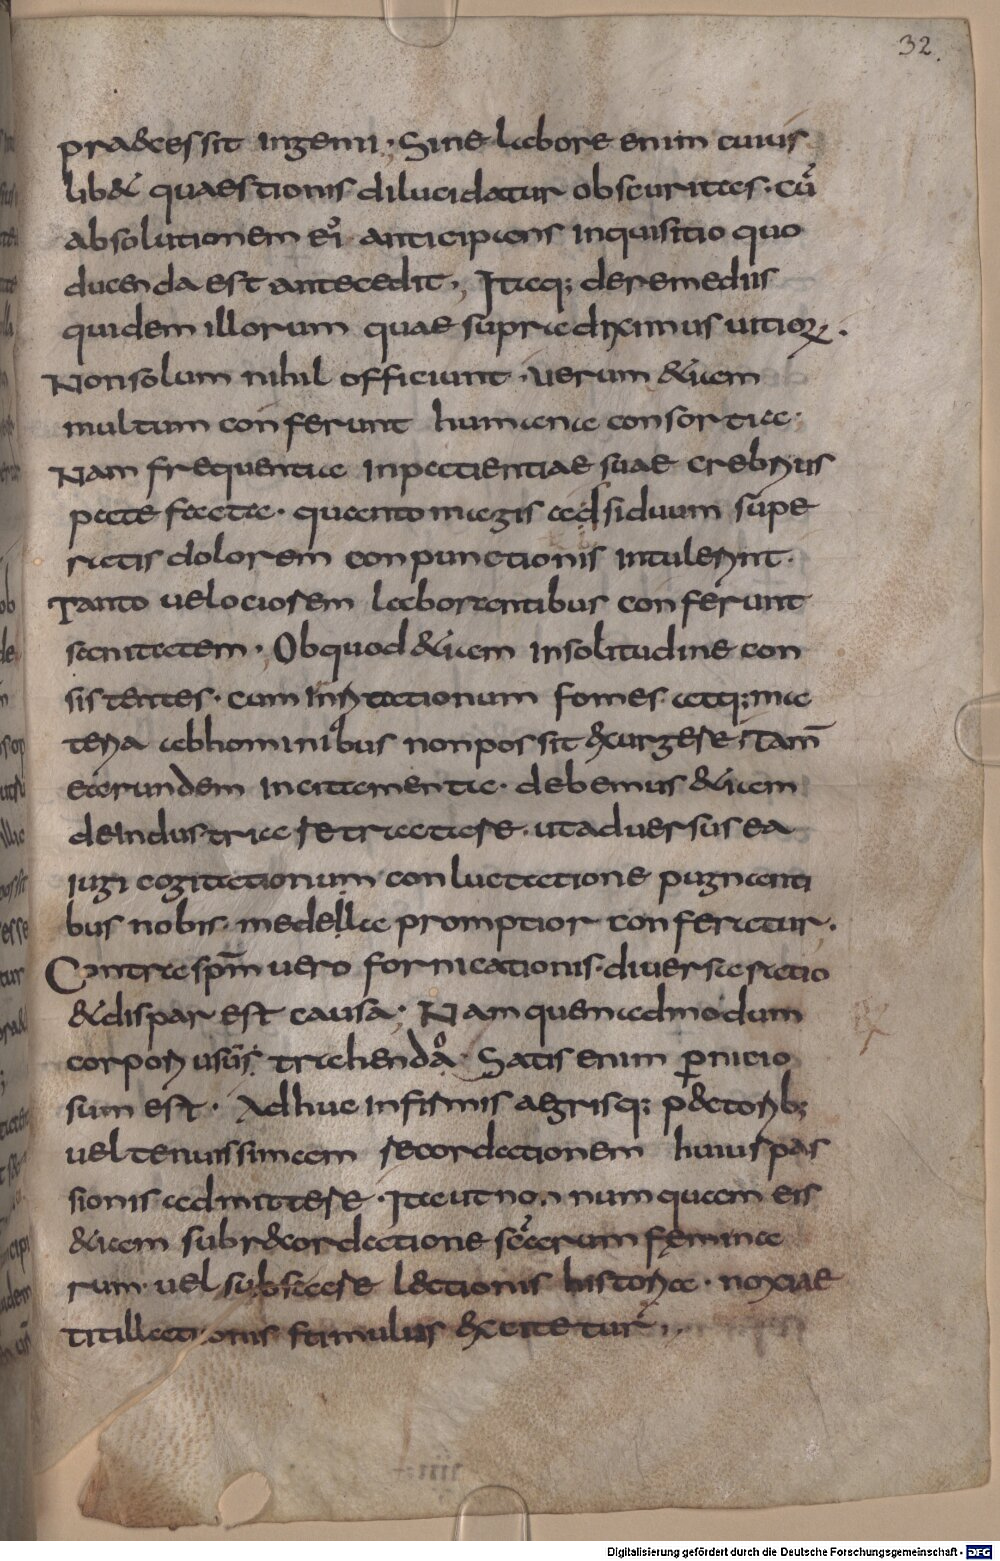 32
praecessit ingenii; Sine labore enim cuius
lib& quaestionis dilucidatur obscuritas. cū
absolutionem eī anticipans inquisitio quo
ducenda est antecedit; Itaq; de remediis
quidem illorum quae supra diximus uitioꝝ.
Non solum nihil officiunt. uerum &iam
multum conferunt humana consortia;
Nam frequentia inpatientiae suae crebrius
pate facta. quanto magis adsiduum supe
ratis dolorem conpunctionis intulerint.
Tanto uelociorem laborantibus conferunt
sanitatem. Ob quod &iam in solitudine con
sistentes. cum inritationum fomes. atq; ma
teria ab hominibus non possit exurgere, Tam̄
earundem incitamenta. debemus &iam
de industria retractare. ut aduersus ea
iugi cogitationum conluctatione pugnanti
bus nobis. medella promptior conferatur.
Contra spm̄ uero fornicationis. diuersa ratio
& dispar est causa; Nam quemadmodum
corpori usus trahenda; Satis enim ꝑnicio
sum est. Adhuc infirmis aegrisq; p&toribꝫ
uel tenuissimam recordationem huius pas
sionis admittere. Ita ut non numquam eis
&iam sub r&cordatione sc̄arum femina
rum. uel sub sacrae l&tionis historia. noxiae
titillationis stimulus excitetur;
Digitalisierung gefördert durch die Deutsche Forschungsgemeinschaft - DFG